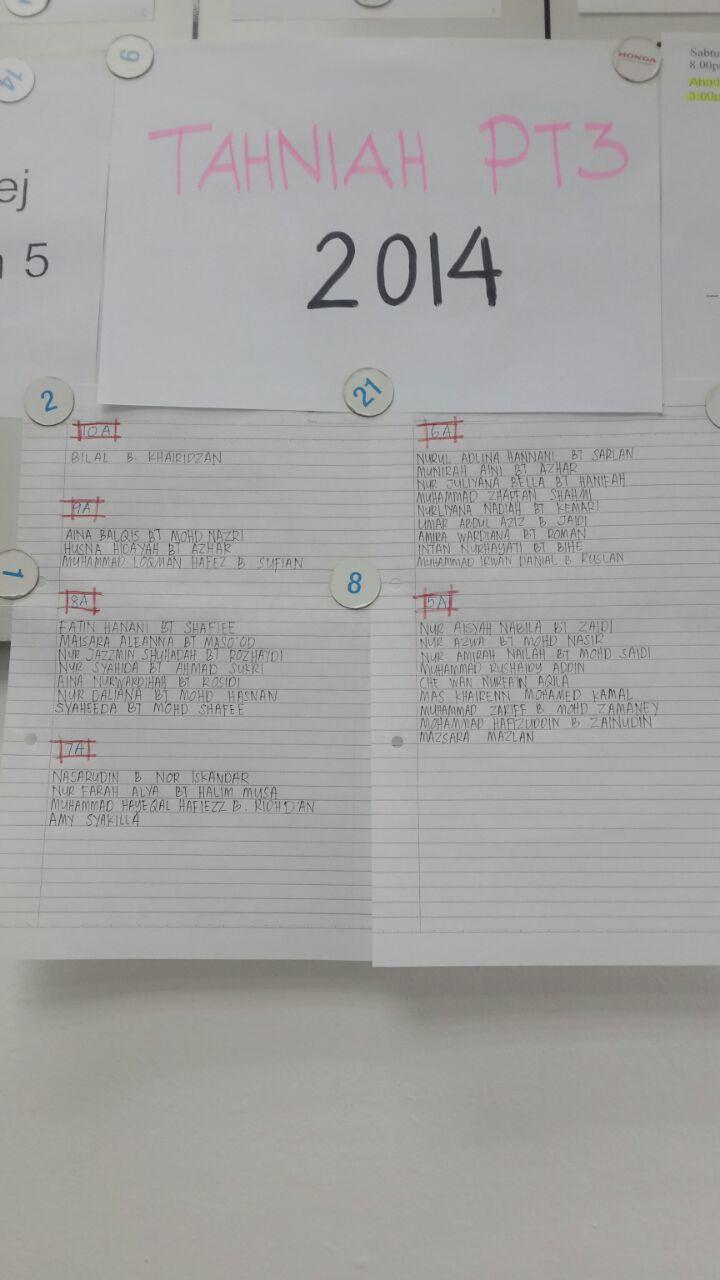 9
HONDA
14
Sabtu
8.00p
Ahad
3.00p
ej
5
TAHNIAH PT3
2014
2
21
10A
BILAL B. KHAIRIDZAN
9A
AINA BALQIS BT MOHD NAZRI
HUSNA HIDAYAH BT AZHAR
MUHAMMAD LOQMAN HAFEZ B SUFIAN
1
8A
FATIN HANANI BT SHAFIEE
MAISARA ALEANNA BT MASO'OD
NUR JAZZMIN SHUHADAH BT ROZHAYDI
NUR SYAHIDA BT AHMAD SUKRI
AINA NURWARDIHAH BT ROSIDI
NUR DALIANA BT MOHD HASNAN
SYAHEEDA BT MOHD SHAFEE
7A
NASARUDIN B NOR ISKANDAR
NUR FARAH ALYA BT HALIM MUSA
MUHAMMAD HAYEQAL HAFIEZZ B. RIDHD'AN
AMY SYAKILLA
6A
NURUL ADLINA HANNANI BT SARLAN
MUNIRAH AINI BT AZHAR
NUR JULIYANA BELLA BT HANIFAH
MUHAMMAD ZHAFFAN SHAHMI
NURLIYANA NADIAH BT KEMARI
UMAR ABDUL AZIZ B JAIDI
AMIRA WARDIANA BT ROMAN
INTAN NURHAYATI BT BIHE
MUHAMMAD IRWAN DANIAL B RUSLAN
8
5A
NUR AISYAH NABILA BT ZAIDI
NUR AZWA BT MOHD NASIR
NUR AMIRAH NAILAH BT MOHD SAIDI
MUHAMMAD RUSHAIDY ADDIN
CHE WAN NURFAIN AQILA
MAS KHAIRENN MOHAMED KAMAL
MUHAMMAD ZARIFF B MOHD ZAMANEY
MOHAMMAD HAFIZUDDIN B ZAINUDIN
MAZSARA MAZLAN